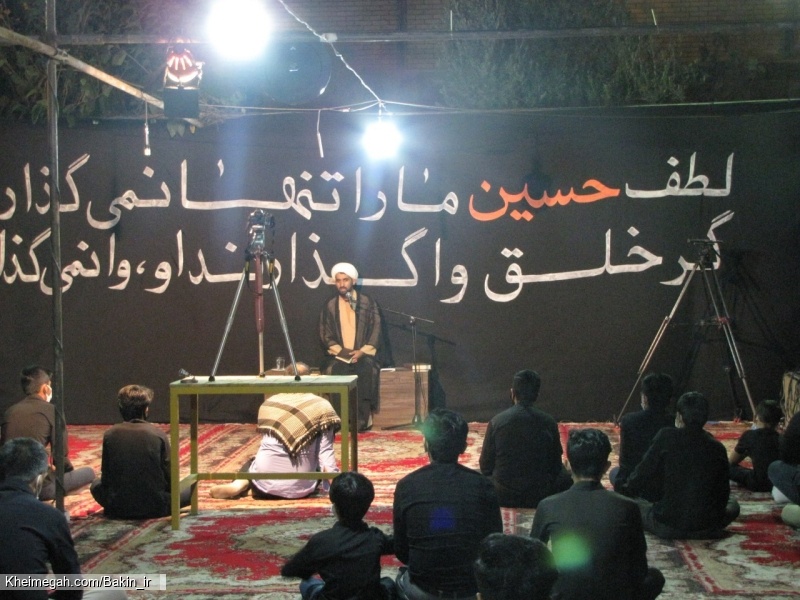 لطف حسین ما را تنها نمی گذارد
گر خلق وا گذارند او، وا نمی گذا
Kheimegah.com/Bakin_ir